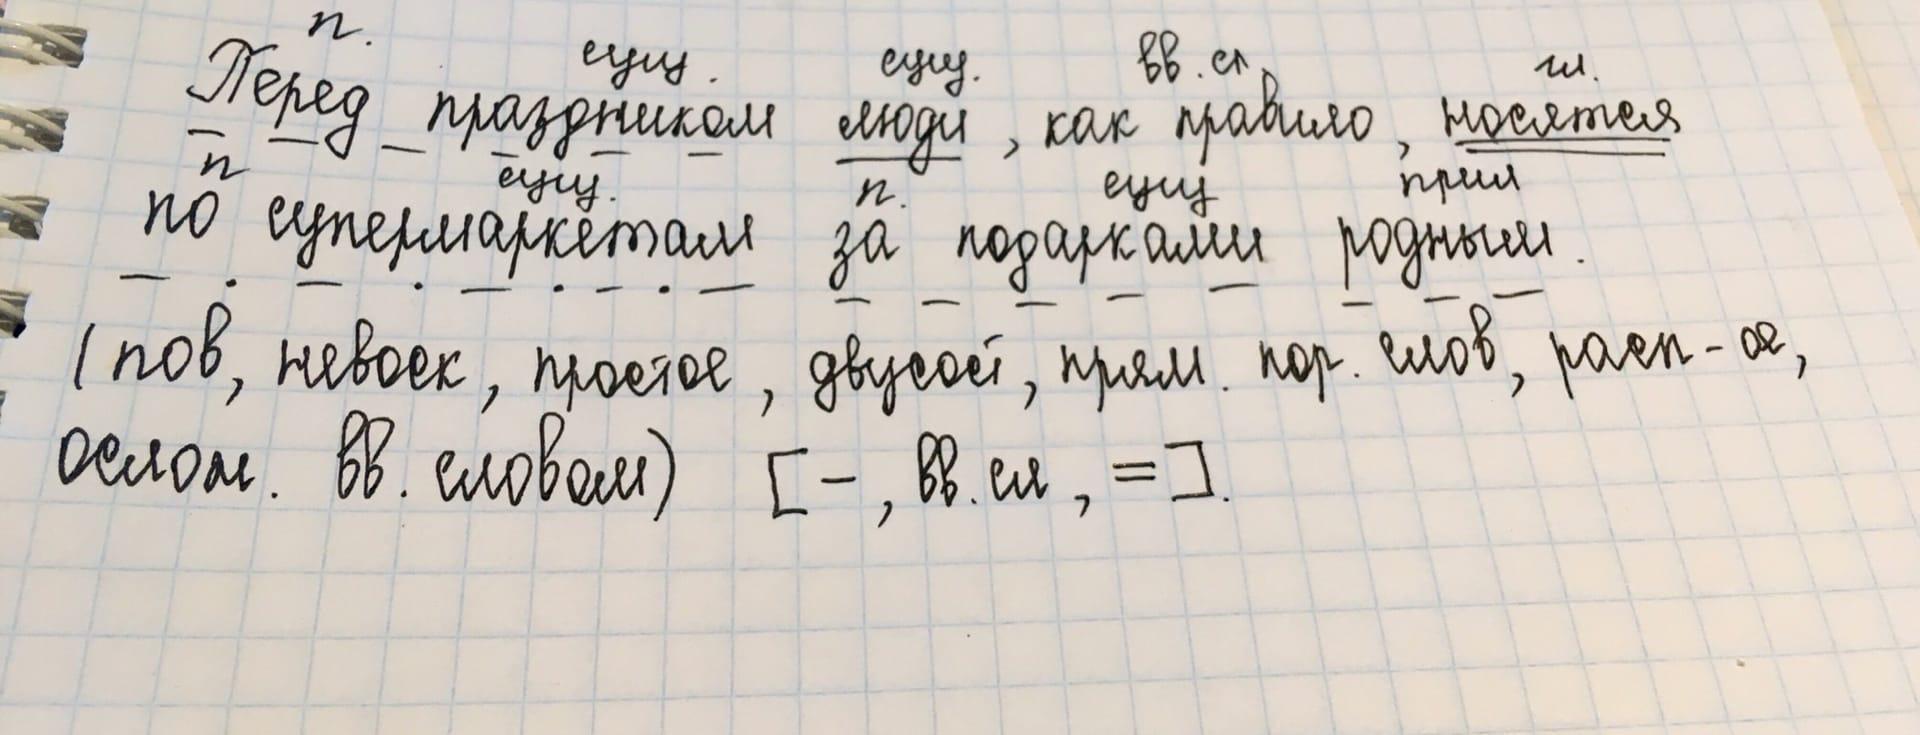 п. сущ. сущ. вв. сл. гл.
Перед праздником люди, как правило, носятся
п сущ. п. сущ прил
по супермаркетам за подарками родным.
(пов, невоск, простое, двусост, прям. пор. слов, расп-ое,
ослож. вв. словом) [-, вв. сл, =].